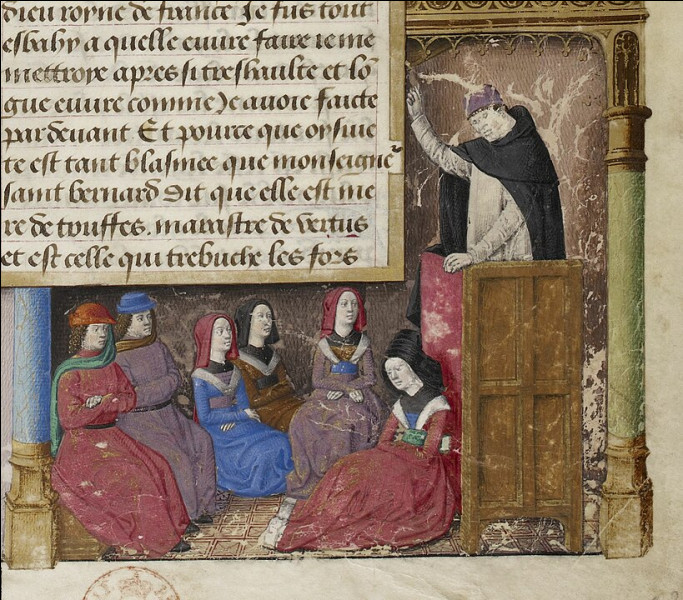 dieu royne de france Je fus tout
esbahy a quelle euure faire ie me
mettroye apres si treshaulte et lo
gue euure comme Je auoie faicte
par deuant Et pource que oysiue
te est tant blasmee que monseigne
saint bernard dit que elle est me
re de touffes. marastre de vertus
et est celle qui trebuche les fors